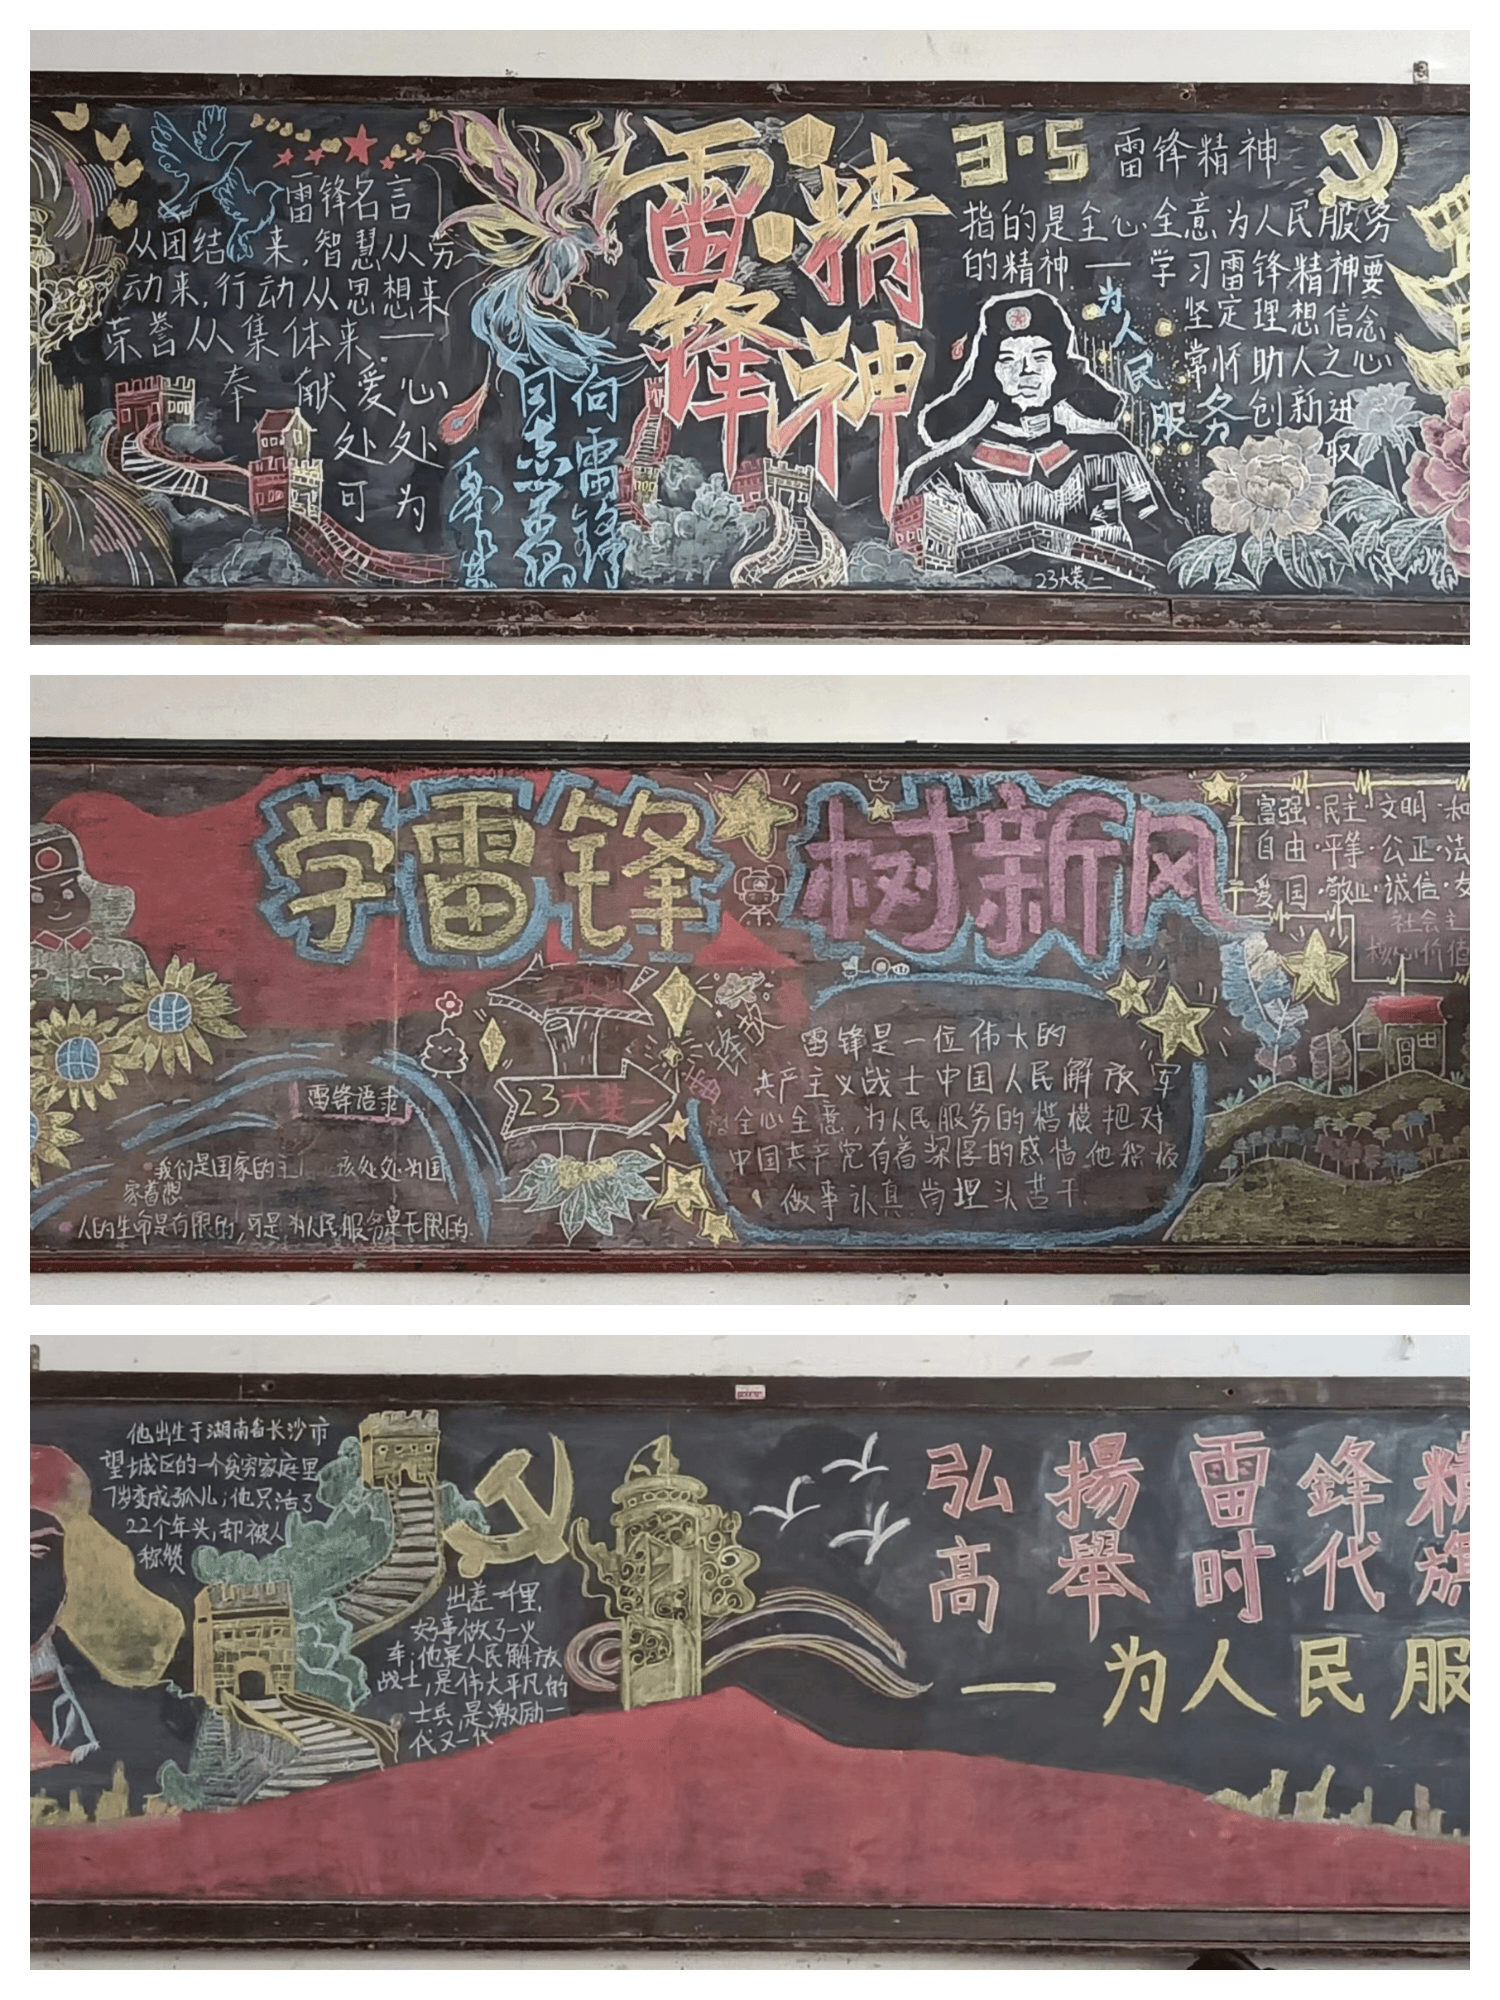 雷锋名言
从团结 来,智慧从劳
动来,行动从思想来
荣誉从集体来——
奉献爱心
处处
可为
向雷锋
同志学习
毛泽东
雷锋
精神
3·5 雷锋精神
指的是全心全意为人民服务
的精神——学习雷锋精神要
坚定理想信念
常怀助人之心
创新进
取
为人民服务
23大装一
学雷锋 树新风
富强·民主·文明·和
自由·平等·公正·法
爱国·敬业·诚信·友
社会主
核心价值
雷锋语录
我们是国家的主 该处处为国
家着想
人的生命是有限的,可是,为人民服务是无限的.
23大装一
雷锋是一位伟大的
共产主义战士中国人民解放军
全心全意,为人民服务的楷模把对
中国共产党有着深厚的感情他积极
做事认真 尚埋头苦干.
他出生于湖南省长沙市
望城区的一个贫穷家庭里
7岁变成孤儿;他只活了
22个年头,却被人
称赞
出差一千里,
好事做了一火
车;他是人民解放
战士,是伟大平凡的
士兵,是激励一
代又一代
弘揚雷鋒精
高舉时代旗
——为人民服